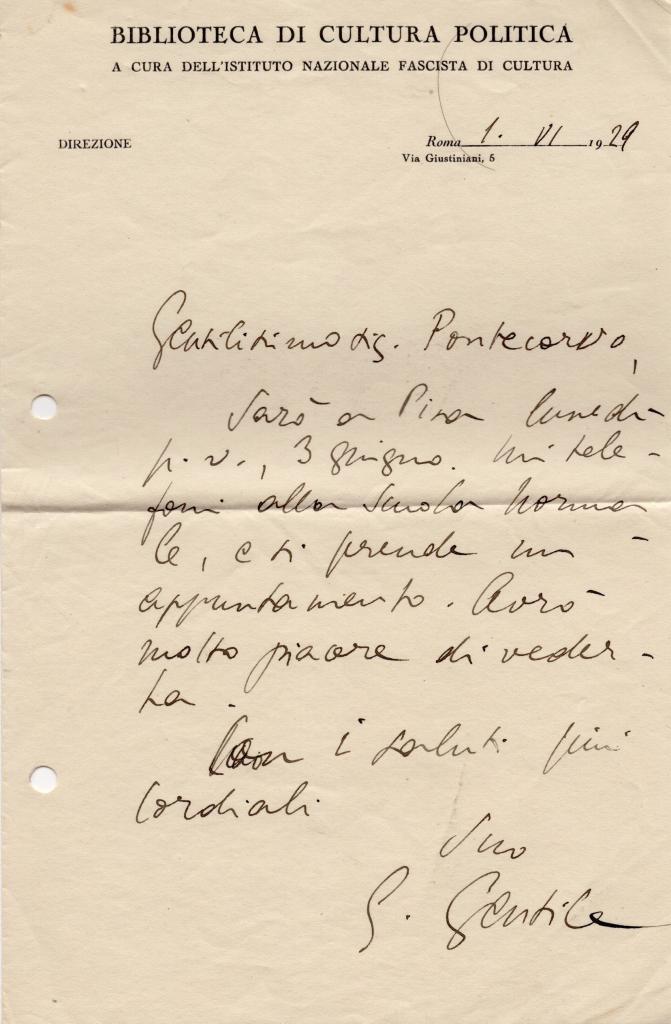 BIBLIOTECA DI CULTURA POLITICA
A CURA DELL'ISTITUTO NAZIONALE FASCISTA DI CULTURA
DIREZIONE
Roma 1. VI 1929
Via Giustiniani, 5
Gentilissimo sig. Pontecorvo,
Sarò a Pisa lunedì
p. v., 3 giugno. Mi tele-
foni alla Scuola Norma-
le, e si prende un
appuntamento. Avrò
molto piacere di veder-
la.
Con i saluti più
cordiali
Suo
G. Gentile